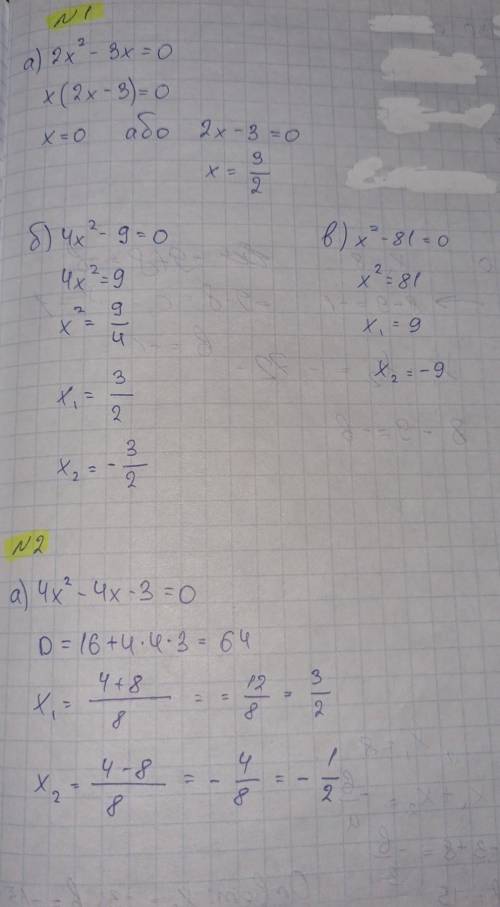 №1
а) 2x² - 3x = 0
x(2x - 3) = 0
x = 0 або 2x - 3 = 0
x = 3/2
б) 4x² - 9 = 0
4x² = 9
x² = 9/4
x₁ = 3/2
x₂ = - 3/2
в) x² - 81 = 0
x² = 81
x₁ = 9
x₂ = -9
№2
а) 4x² - 4x - 3 = 0
D = 16 + 4·4·3 = 64
x₁ = (4+8)/8 = = 12/8 = 3/2
x₂ = (4-8)/8 = - 4/8 = - 1/2